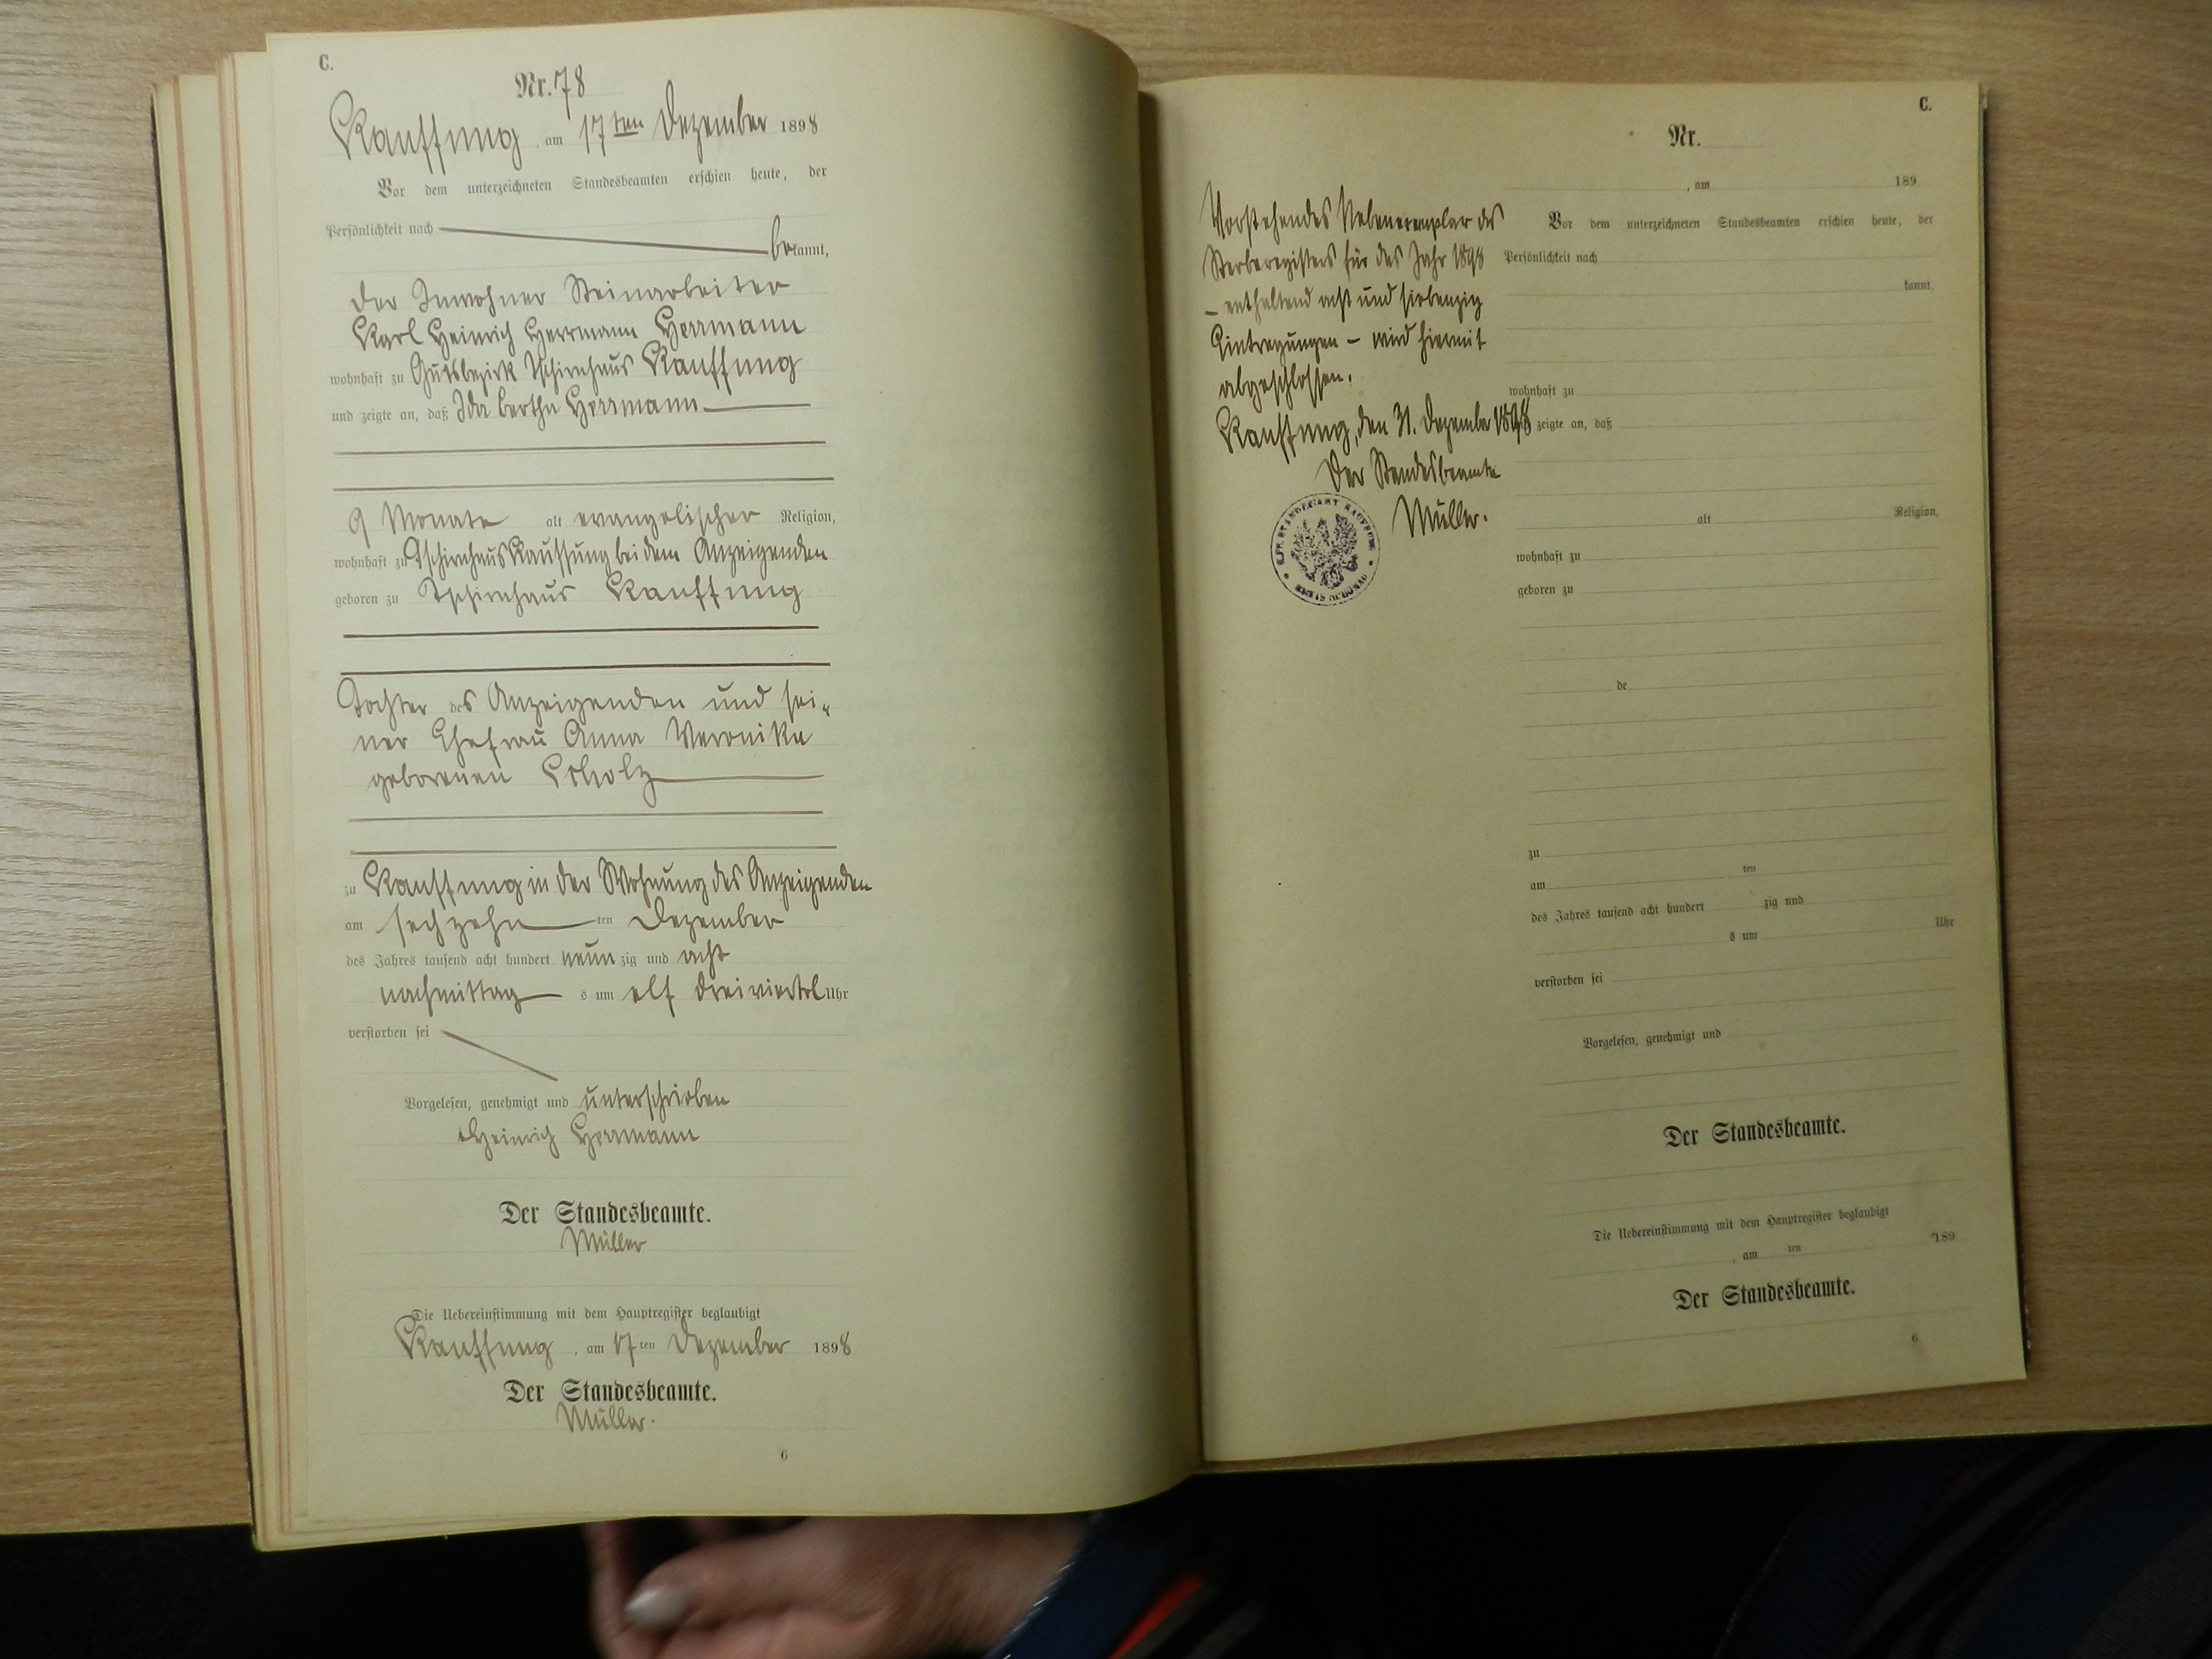 C.
Nr. 78
Kauffung, am 17ten Dezember 1898
Vor dem unterzeichneten Standesbeamten erschien heute, der
Persönlichkeit nach
bekannt,
der Inwohner Steinarbeiter
Karl Heinrich Herrmann Herrmann
wohnhaft zu Gutsbezirk Tschirnhaus Kauffung
und zeigte an, daß Ida Bertha Herrmann
9 Monate alt evangelischer Religion,
wohnhaft zu Tschirnhaus Kauffung bei dem Anzeigenden
geboren zu Tschirnhaus Kauffung
Tochter des Anzeigenden und sei-
ner Ehefrau Anna Veronika
geborenen Scholz
zu Kauffung in der Wohnung des Anzeigenden
am sechzehn ten Dezember
des Jahres tausend acht hundert neunzig und acht
nachmittags um elf dreiviertel Uhr
verstorben sei
Vorgelesen, genehmigt und unterschrieben
Heinrich Herrmann
Der Standesbeamte.
Müller
Die Uebereinstimmung mit dem Hauptregister beglaubigt
Kauffung, am 17ten Dezember 1898
Der Standesbeamte.
Müller.
6
C.
Nr.
, am 189
Vor dem unterzeichneten Standesbeamten erschien heute, der
Persönlichkeit nach
kannt,
wohnhaft zu
zeigte an, daß
alt Religion,
wohnhaft zu
geboren zu
de
zu
am ten
des Jahres tausend acht hundert zig und
s um Uhr
verstorben sei
Vorgelesen, genehmigt und
Der Standesbeamte.
Die Uebereinstimmung mit dem Hauptregister beglaubigt
, am ten 189
Der Standesbeamte.
6
Vorstehendes Nebenexemplar des
Sterberegisters für das Jahr 1898
– enthaltend acht und siebenzig
Eintragungen – wird hiermit
abgeschlossen.
Kauffung, den 31. Dezember 1898
Der Standesbeamte
Müller.
STANDESAMT KAUFFUNG
KREIS SCHÖNAU